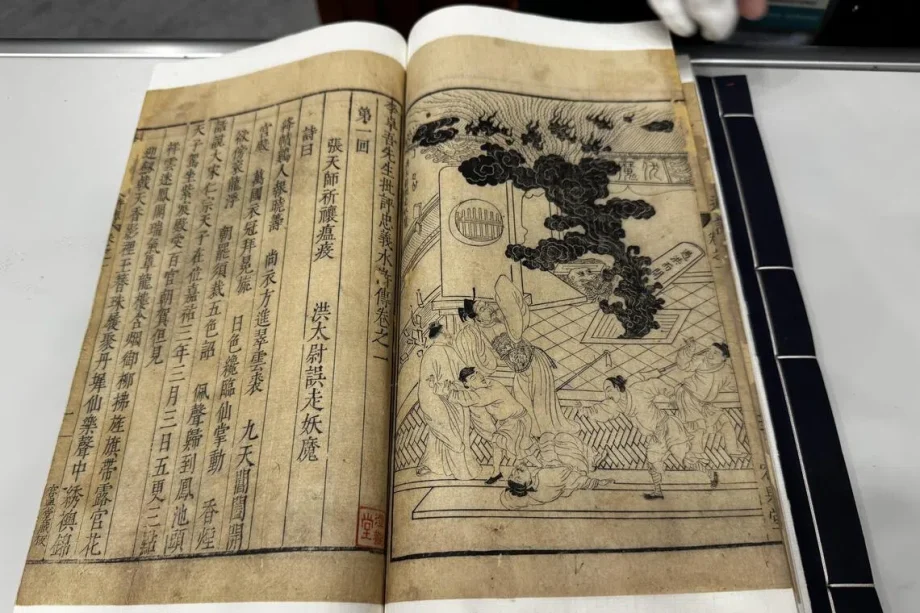 李卓吾先生批評忠義水滸傳卷之一
第一回
張天師祈禳瘟疫　洪太尉誤走妖魔
詩曰
絳幘鷄人報曉籌　尚衣方進翠雲裘　九天閶闔開
宮殿　萬國衣冠拜冕旒　日色纔臨仙掌動　香煙
欲傍袞龍浮　朝罷須裁五色詔　佩聲歸到鳳池頭
話說大宋仁宗天子在位嘉祐三年三月三日五更三點
天子駕坐紫宸殿受百官朝賀但見
祥雲迷鳳閣瑞氣罩龍樓含烟御柳拂旌旗帶露宮花
迎劍戟天香影裡玉簪珠履聚丹墀仙樂聲中綉襖錦
堂